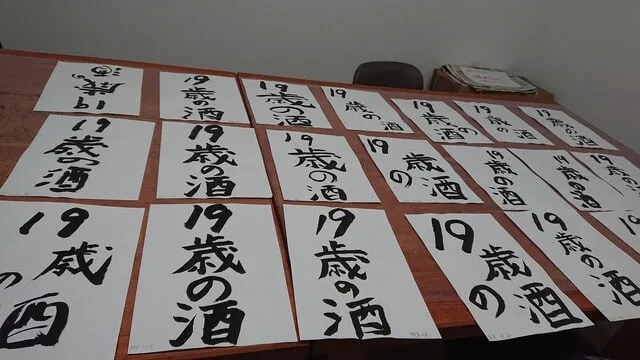 19
歳の
酒
19
歳
の酒
19
歳の
酒
19
歳
の酒
19
歳の
酒
19
歳
の酒
19
歳
の酒
19
歳の
酒
19
歳
の酒
19
歳
の酒
19
歳
の酒
19
歳
の酒
19
歳
の酒
19
歳
の酒
19
歳
の酒
19
歳
の
酒
19
歳
の
酒
19
歳
の酒
19
歳
の酒